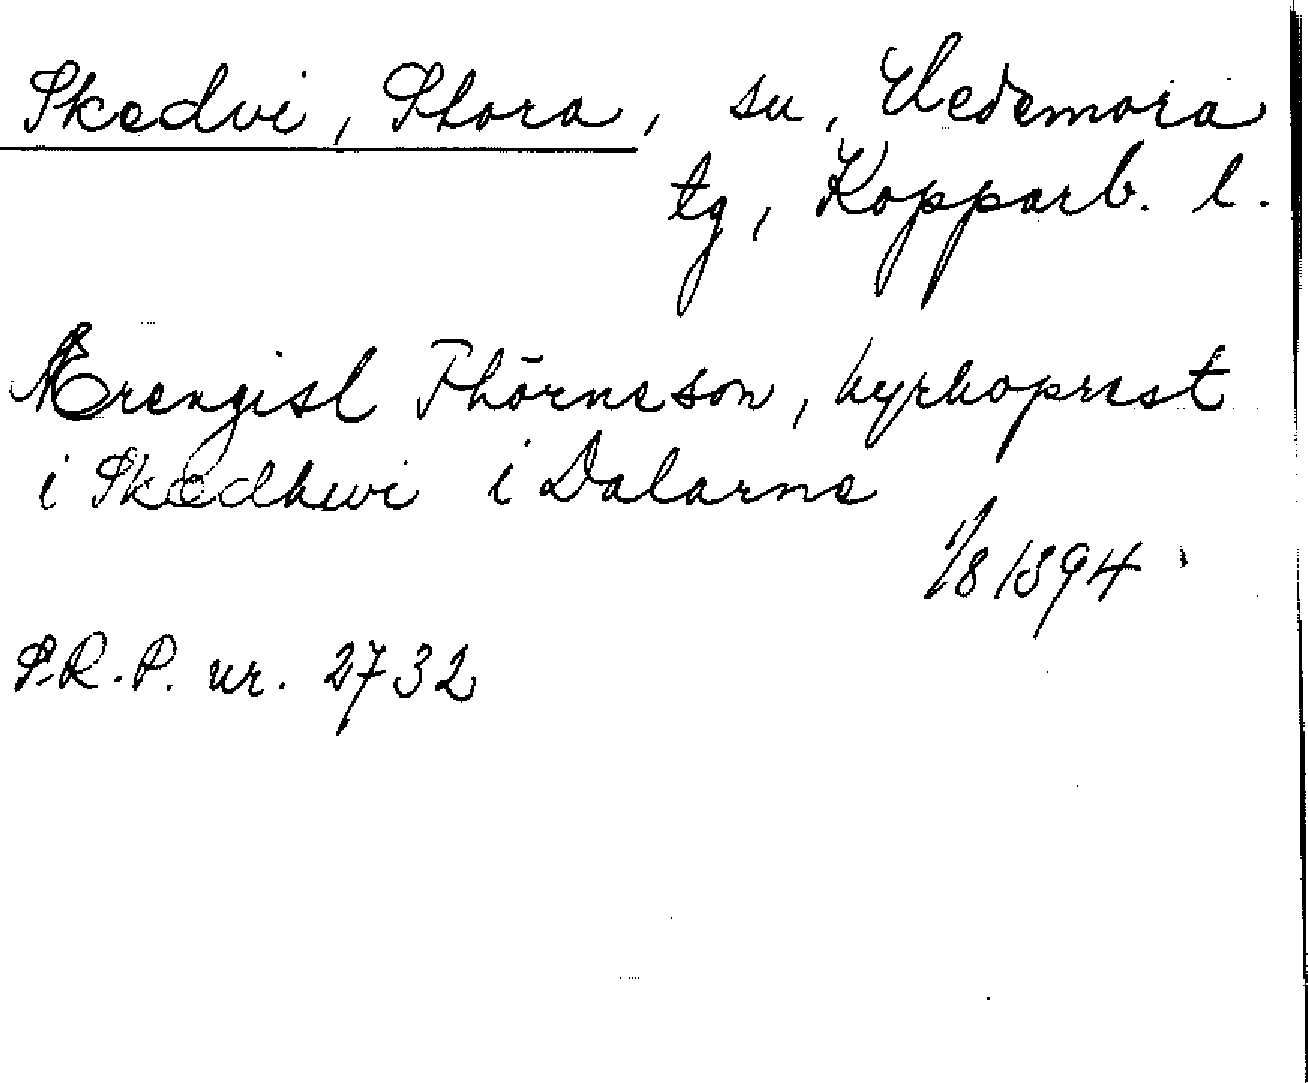 Skedvi, Stora, sn, Hedemora
tg, Kopparb. l.
Ærengisl Thörnesson, kyrkoprest
i Skedhwi i Dalarne
1/8 1394
S.R.P. nr. 2732